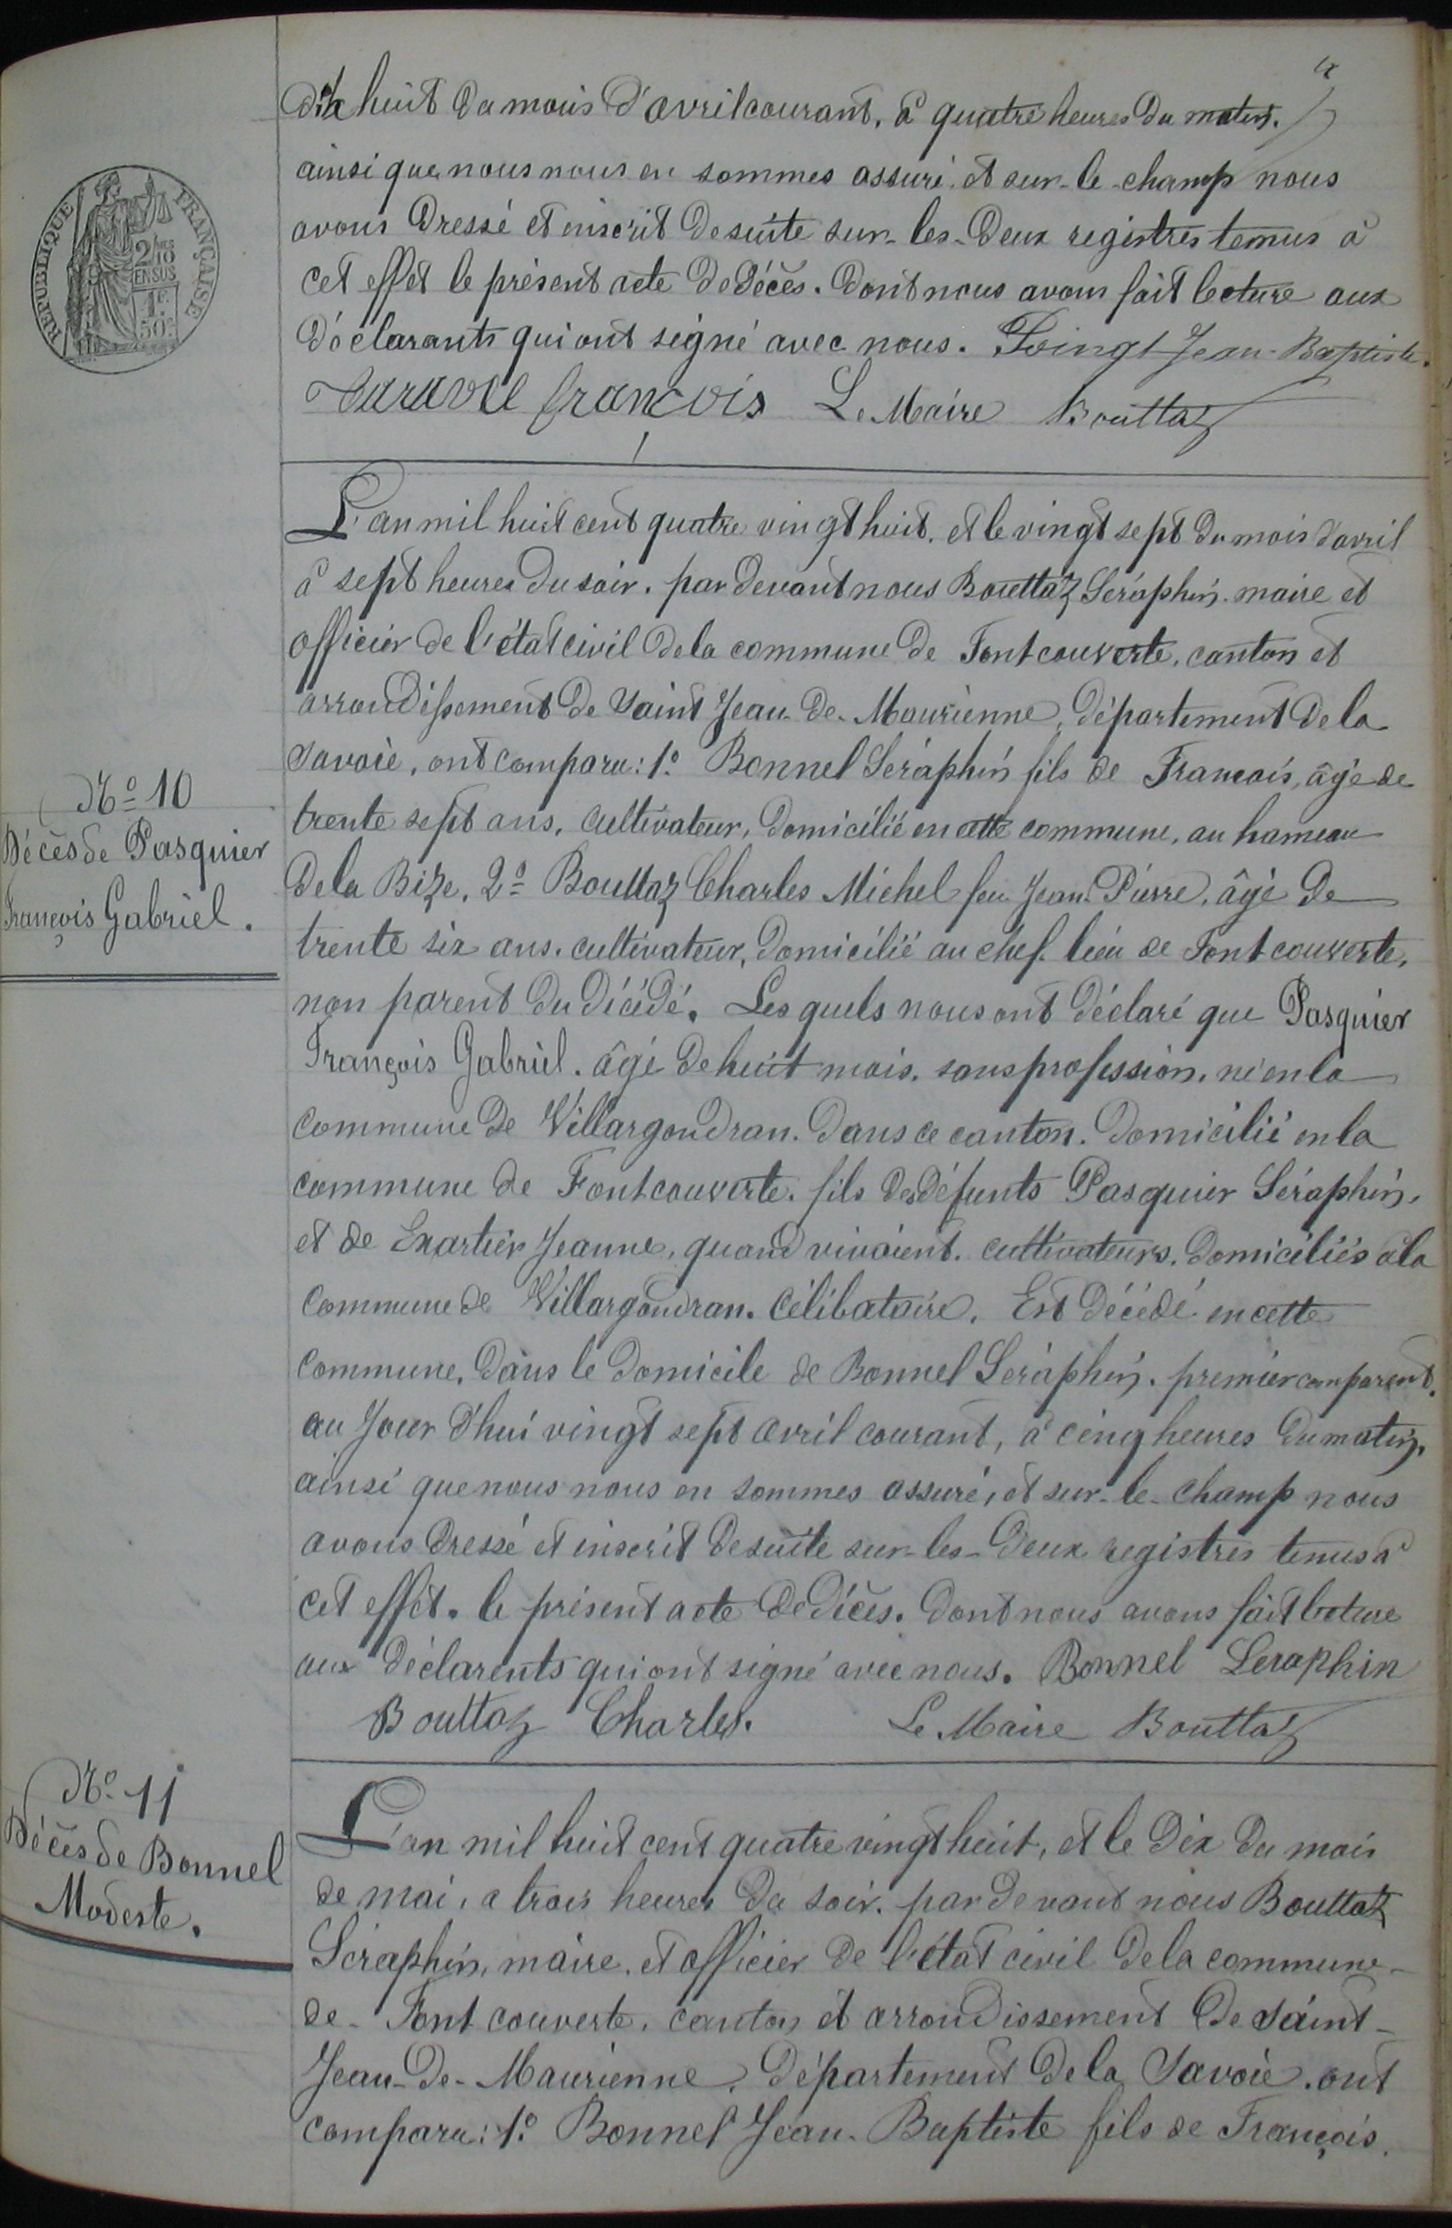 4
dix huit du mois d'avril courant, à quatre heures du matin.
ainsi que nous nous en sommes assuré. et sur-le-champ nous
avons dressé et inscrit de suite sur-les-deux registres tenus à
cet effet le présent acte de décès. dont nous avons fait lecture aux
déclarants qui ont signé avec nous. Jean-Baptiste.
François Le Maire Bouttaz
RÉPUBLIQUE FRANÇAISE
2/10
EN SUS
1F
50c
L'an mil huit cent quatre vingt huit, et le vingt sept du mois d'avril
à sept heures du soir. par devant nous Bouttaz Séraphin. maire et
officier de l'état civil de la commune de Fontcouverte, canton et
arrondissement de Saint Jean-de-Maurienne, département de la
Savoie, ont comparu: 1° Bonnel Séraphin fils de Francois, âgé de
trente sept ans, cultivateur, domicilié en cette commune, au hameau
de la Bize, 2° Bouttaz Charles Michel feu Jean-Pierre, âgé de
trente six ans. cultivateur, domicilié au chef-lieu de Fontcouverte,
non parent du décédé. Les quels nous ont déclaré que Pasquier
François Gabriel. âgé de huit mois. sans profession. né en la
commune de Villargondran. dans ce canton. domicilié en la
commune de Fontcouverte. fils des défunts Pasquier Séraphin,
et de Exartier Jeanne, quand vivaient. cultivateurs. domiciliés à la
commune de Villargondran. célibataire. Est décédé en cette
commune, dans le domicile de Bonnel Séraphin. premier comparent.
au Jour d'hui vingt sept avril courant, à cinq heures du matin,
ainsi que nous nous en sommes assuré, et sur-le-champ nous
avons dressé et inscrit de suite sur-les-deux registres tenus à
cet effet. le présent acte de décès. dont nous avons fait lecture
aux déclarents qui ont signé avec nous. Bonnel Seraphin
Bouttaz Charles. Le Maire Bouttaz
N° 10
Décès de Pasquier
François Gabriel.
N° 11
Décès de Bonnel
Modeste.
L'an mil huit cent quatre vingt huit, et le dix du mois
de mai, a trois heures du soir. par devant nous Bouttaz
Séraphin, maire. et officier de l'état civil de la commune-
de-Fontcouverte. canton et arrondissement de Saint-
Jean-de-Maurienne. département de la Savoie. ont
comparu: 1° Bonnel Jean-Baptiste fils de François.